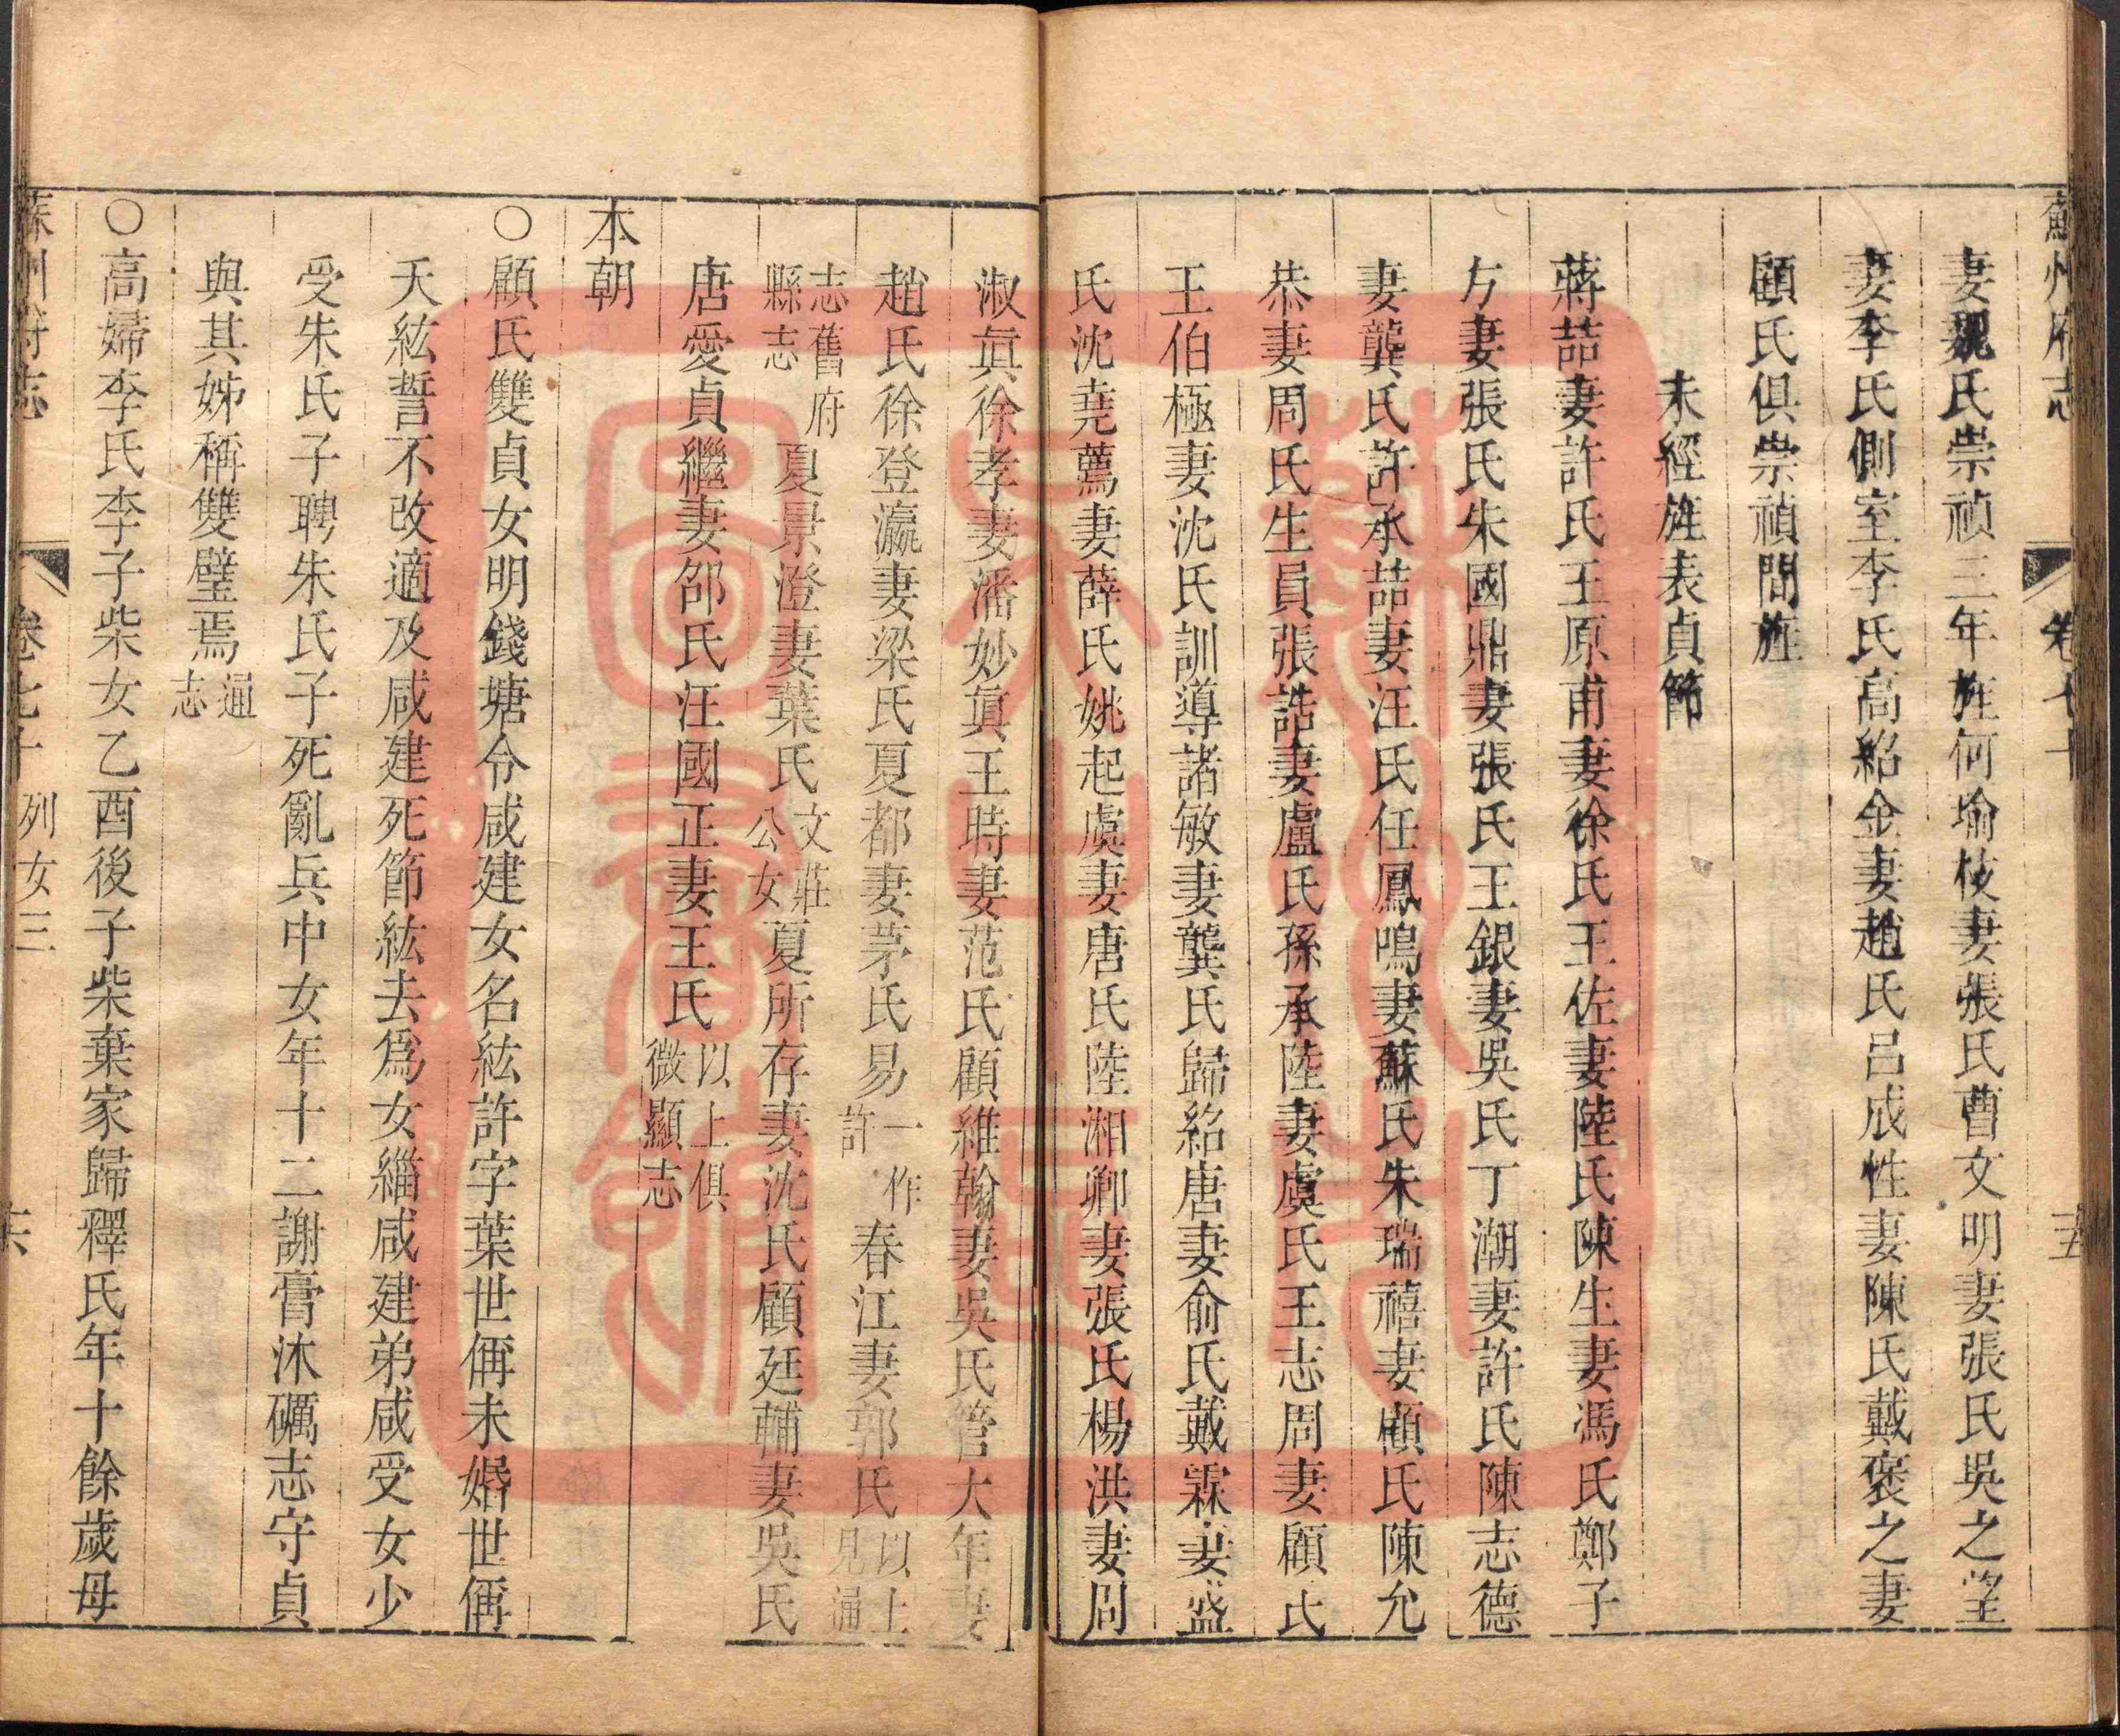 蘇州府志 卷七十 十五
妻魏氏崇禎三年旌何瑜枝妻張氏曹文明妻張氏吳之瑩
妻李氏側室李氏高紹金妻趙氏呂成性妻陳氏戴褒之妻
顧氏俱崇禎間旌
未經旌表貞節
蔣喆妻許氏王原甫妻徐氏王佐妻陸氏陳生妻馮氏鄭子
方妻張氏朱國鼎妻張氏王銀妻吳氏丁潮妻許氏陳志德
妻龔氏許承喆妻汪氏任鳳鳴妻蘇氏朱瑞禧妻顧氏陳允
恭妻周氏生員張誥妻盧氏孫承陸妻虞氏王志周妻顧氏
王伯極妻沈氏訓導諸敏妻龔氏歸紹唐妻俞氏戴霖妻盛
氏沈堯薦妻薛氏姚起虞妻唐氏陸湘卿妻張氏楊洪妻周
淑眞徐孝妻潘妙眞王時妻范氏顧維翰妻吳氏管大年妻
趙氏徐登瀛妻梁氏夏都妻茅氏易一作許春江妻郭氏以上見通
志舊府縣志夏景澄妻葉氏文莊公女夏所存妻沈氏顧廷輔妻吳氏
唐愛貞繼妻邵氏汪國正妻王氏以上俱微顯志
本朝
○顧氏雙貞女明錢塘令咸建女名紘許字葉世偁未婚世偁
夭紘誓不改適及咸建死節紘去爲女緇咸建弟咸受女少
受朱氏子聘朱氏子死亂兵中女年十二謝膏沐礪志守貞
與其姊稱雙璧焉通志
○高婦李氏李子柴女乙酉後子柴棄家歸釋氏年十餘歲母
蘇州府志 卷七十 列女三 十六